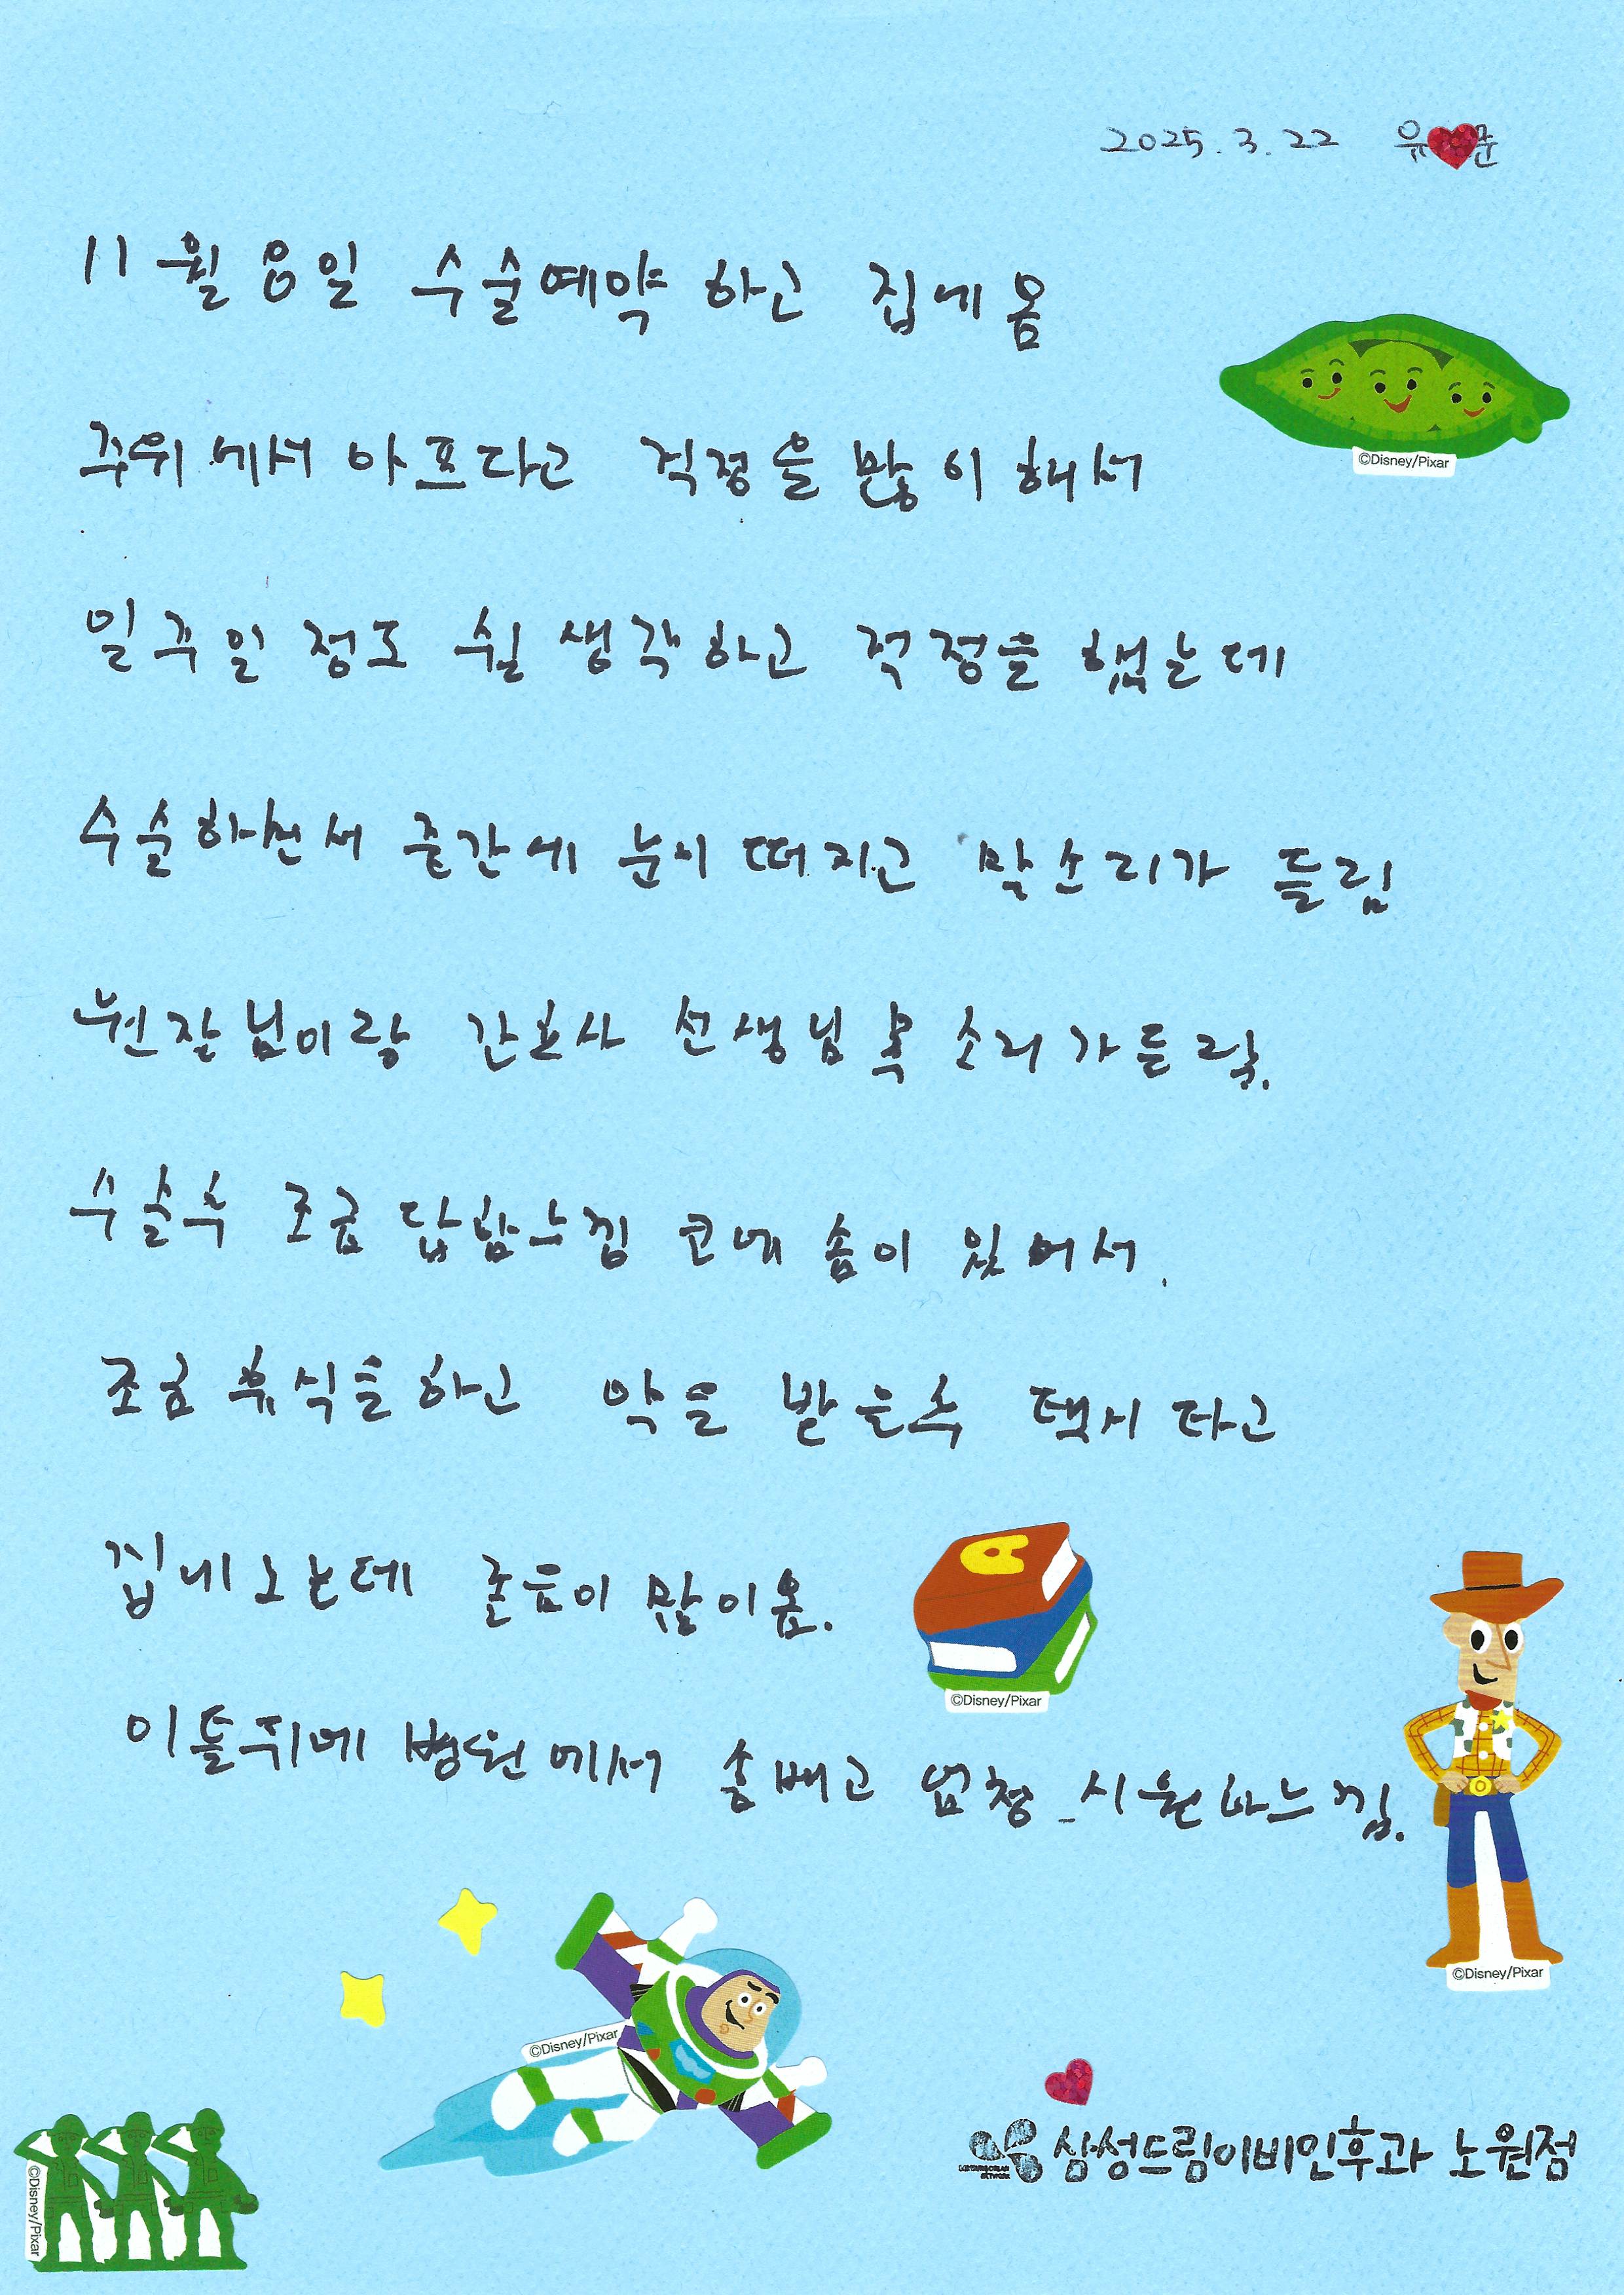 2025. 3. 22 유♥준
11월 8일 수술예약 하고 집에 옴
주위에서 아프다고 걱정을 많이 해서
일주일 정도 쉴 생각하고 걱정을 했는데
수술하면서 중간에 눈이 떠지고 말소리가 들림
원장님이랑 간호사 선생님 목소리가 들림.
수술후 조금 답답함느낌 코에 솜이 있어서.
조금 휴식을 하고 약을 받은후 택시 타고
집에 오는데 졸음이 많이 옴.
이틀뒤에 병원에서 솜빼고 엄청 시원한느낌.
©Disney/Pixar
©Disney/Pixar
©Disney/Pixar
©Disney/Pixar
©Disney/Pixar
삼성드림이비인후과 노원점